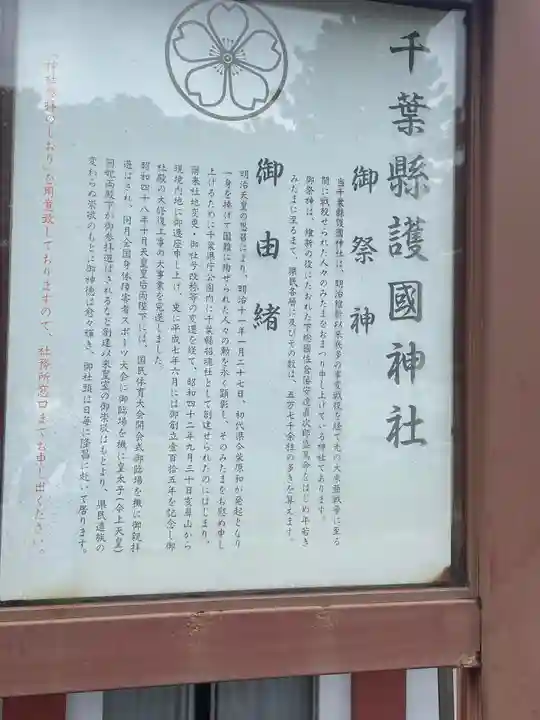 千葉縣護國神社
御祭神
当千葉縣護國神社は、明治維新以来幾多の事変戦役を経て先の大東亜戦争に至る
間に戦歿せられた人々のみたまをおまつり申し上げている神社であります。
御祭神は、維新の役にたおれた下総国佐倉藩安達直次郎盛篤命をはじめ年若き
みたまに至るまで、県民各層に及びその数は、五万七千余柱の多きを算えます。
御由緒
明治天皇の思召により、明治十一年一月二十七日、初代県令柴原和が発起となり
一身を捧げて国難に殉ぜられた人々の勲を永く顕彰し、そのみたまをお慰め申し
上げるために千葉県庁公園内に千葉縣招魂社として創建せられたのにはじまり、
爾来社地変更・御社号改称等の変遷を経て、昭和四十二年九月三十日亥鼻山から
現境内地に御遷座申し上げ、更に平成七年六月には御創立壹百拾五年を記念し御
社殿の大修復工事の大事業を完遂しました。
昭和四十八年十月天皇皇后両陛下には、国民体育大会開会式御臨場を機に御親拝
遊ばされ、同月全国身体障害者スポーツ大会に御臨場を機に皇太子(今上天皇)
同妃両殿下が御参拝遊ばされるなど創建以来皇室の御崇敬はもとより、県民遺族の
変わらぬ崇敬のもとに御神徳は愈々輝き、御社頭は日毎に隆昌に赴いて居ります。
しおりを用意致しておりますので、社務所窓口までお申し出ください。